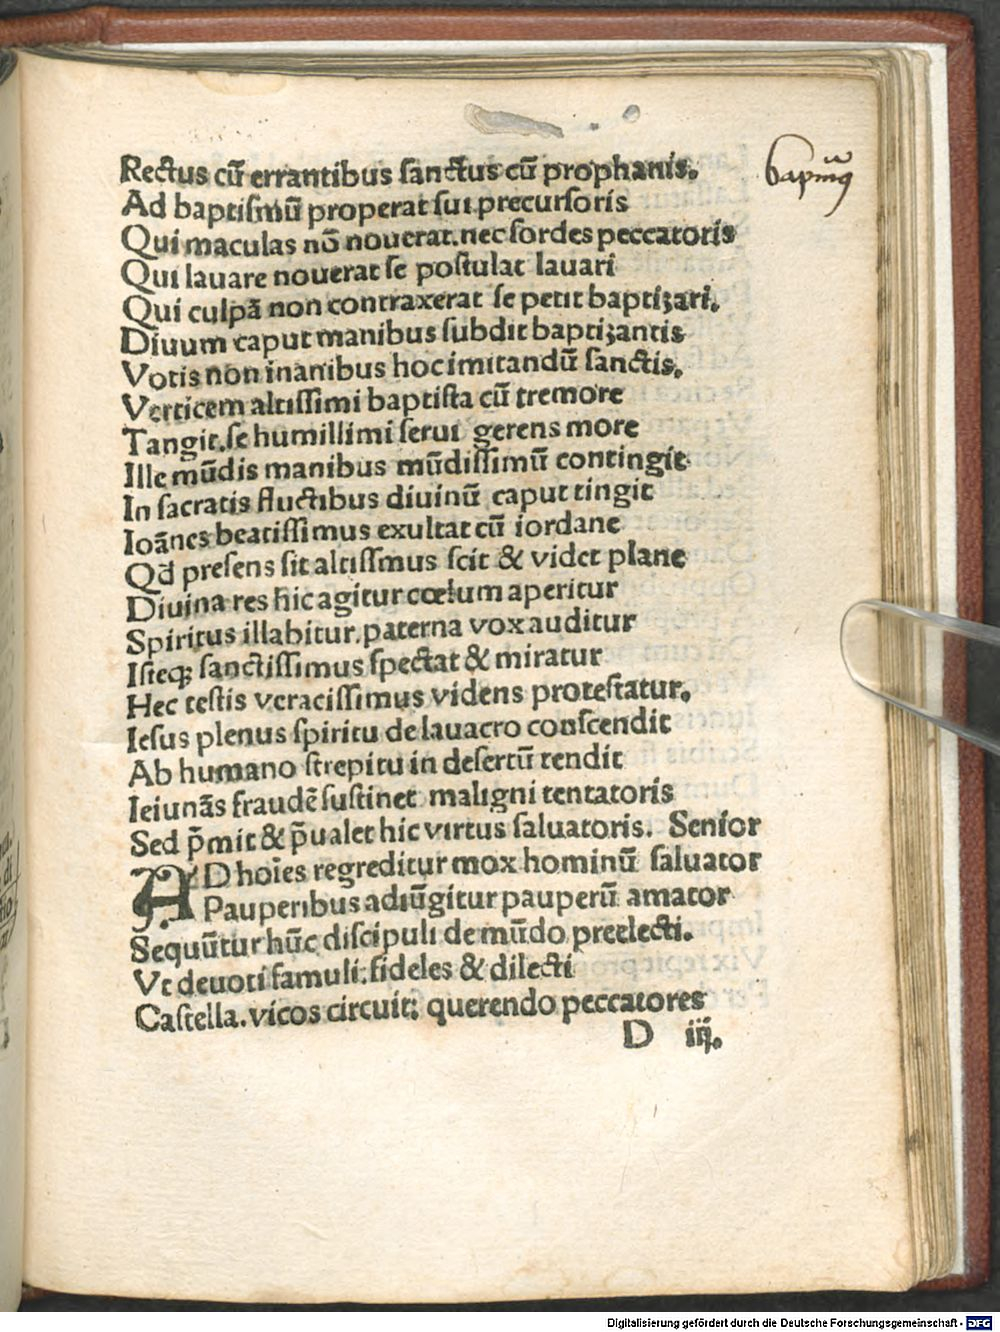 Rectus cū errantibus sanctus cū prophanis.
Ad baptismū properat sui precursoris
Qui maculas nō nouerat. nec sordes peccatoris
Qui lauare nouerat se postulat lauari
Qui culpā non contraxerat se petit baptizari.
Diuum caput manibus subdit baptizantis
Votis non inanibus hoc imitandū sanctis.
Verticem altissimi baptista cū tremore
Tangit. se humillimi serui gerens more
Ille mūdis manibus mūdissimū contingit
In sacratis fluctibus diuinū caput tingit
Ioānes beatissimus exultat cū iordane
Qđ presens sit altissmus scit & videt plane
Diuina res hic agitur cœlum aperitur
Spiritus illabitur. paterna vox auditur
Isteq; sanctissimus spectat & miratur
Hec testis veracissimus videns protestatur.
Iesus plenus spiritu de lauacro conscendit
Ab humano strepitu in desertū tendit
Ieiunās fraudē sustinet maligni tentatoris
Sed p̄mit & p̄ualet hic virtus saluatoris. Senior
AD hoīes regreditur mox hominū saluator
Pauperibus adiūgitur pauperū amator
Sequūtur hūc discipuli de mūdo preelecti.
Vt deuoti famuli: fideles & dilecti
Castella. vicos circuit: querendo peccatores
D iij.
Digitalisierung gefördert durch die Deutsche Forschungsgemeinschaft - DFG